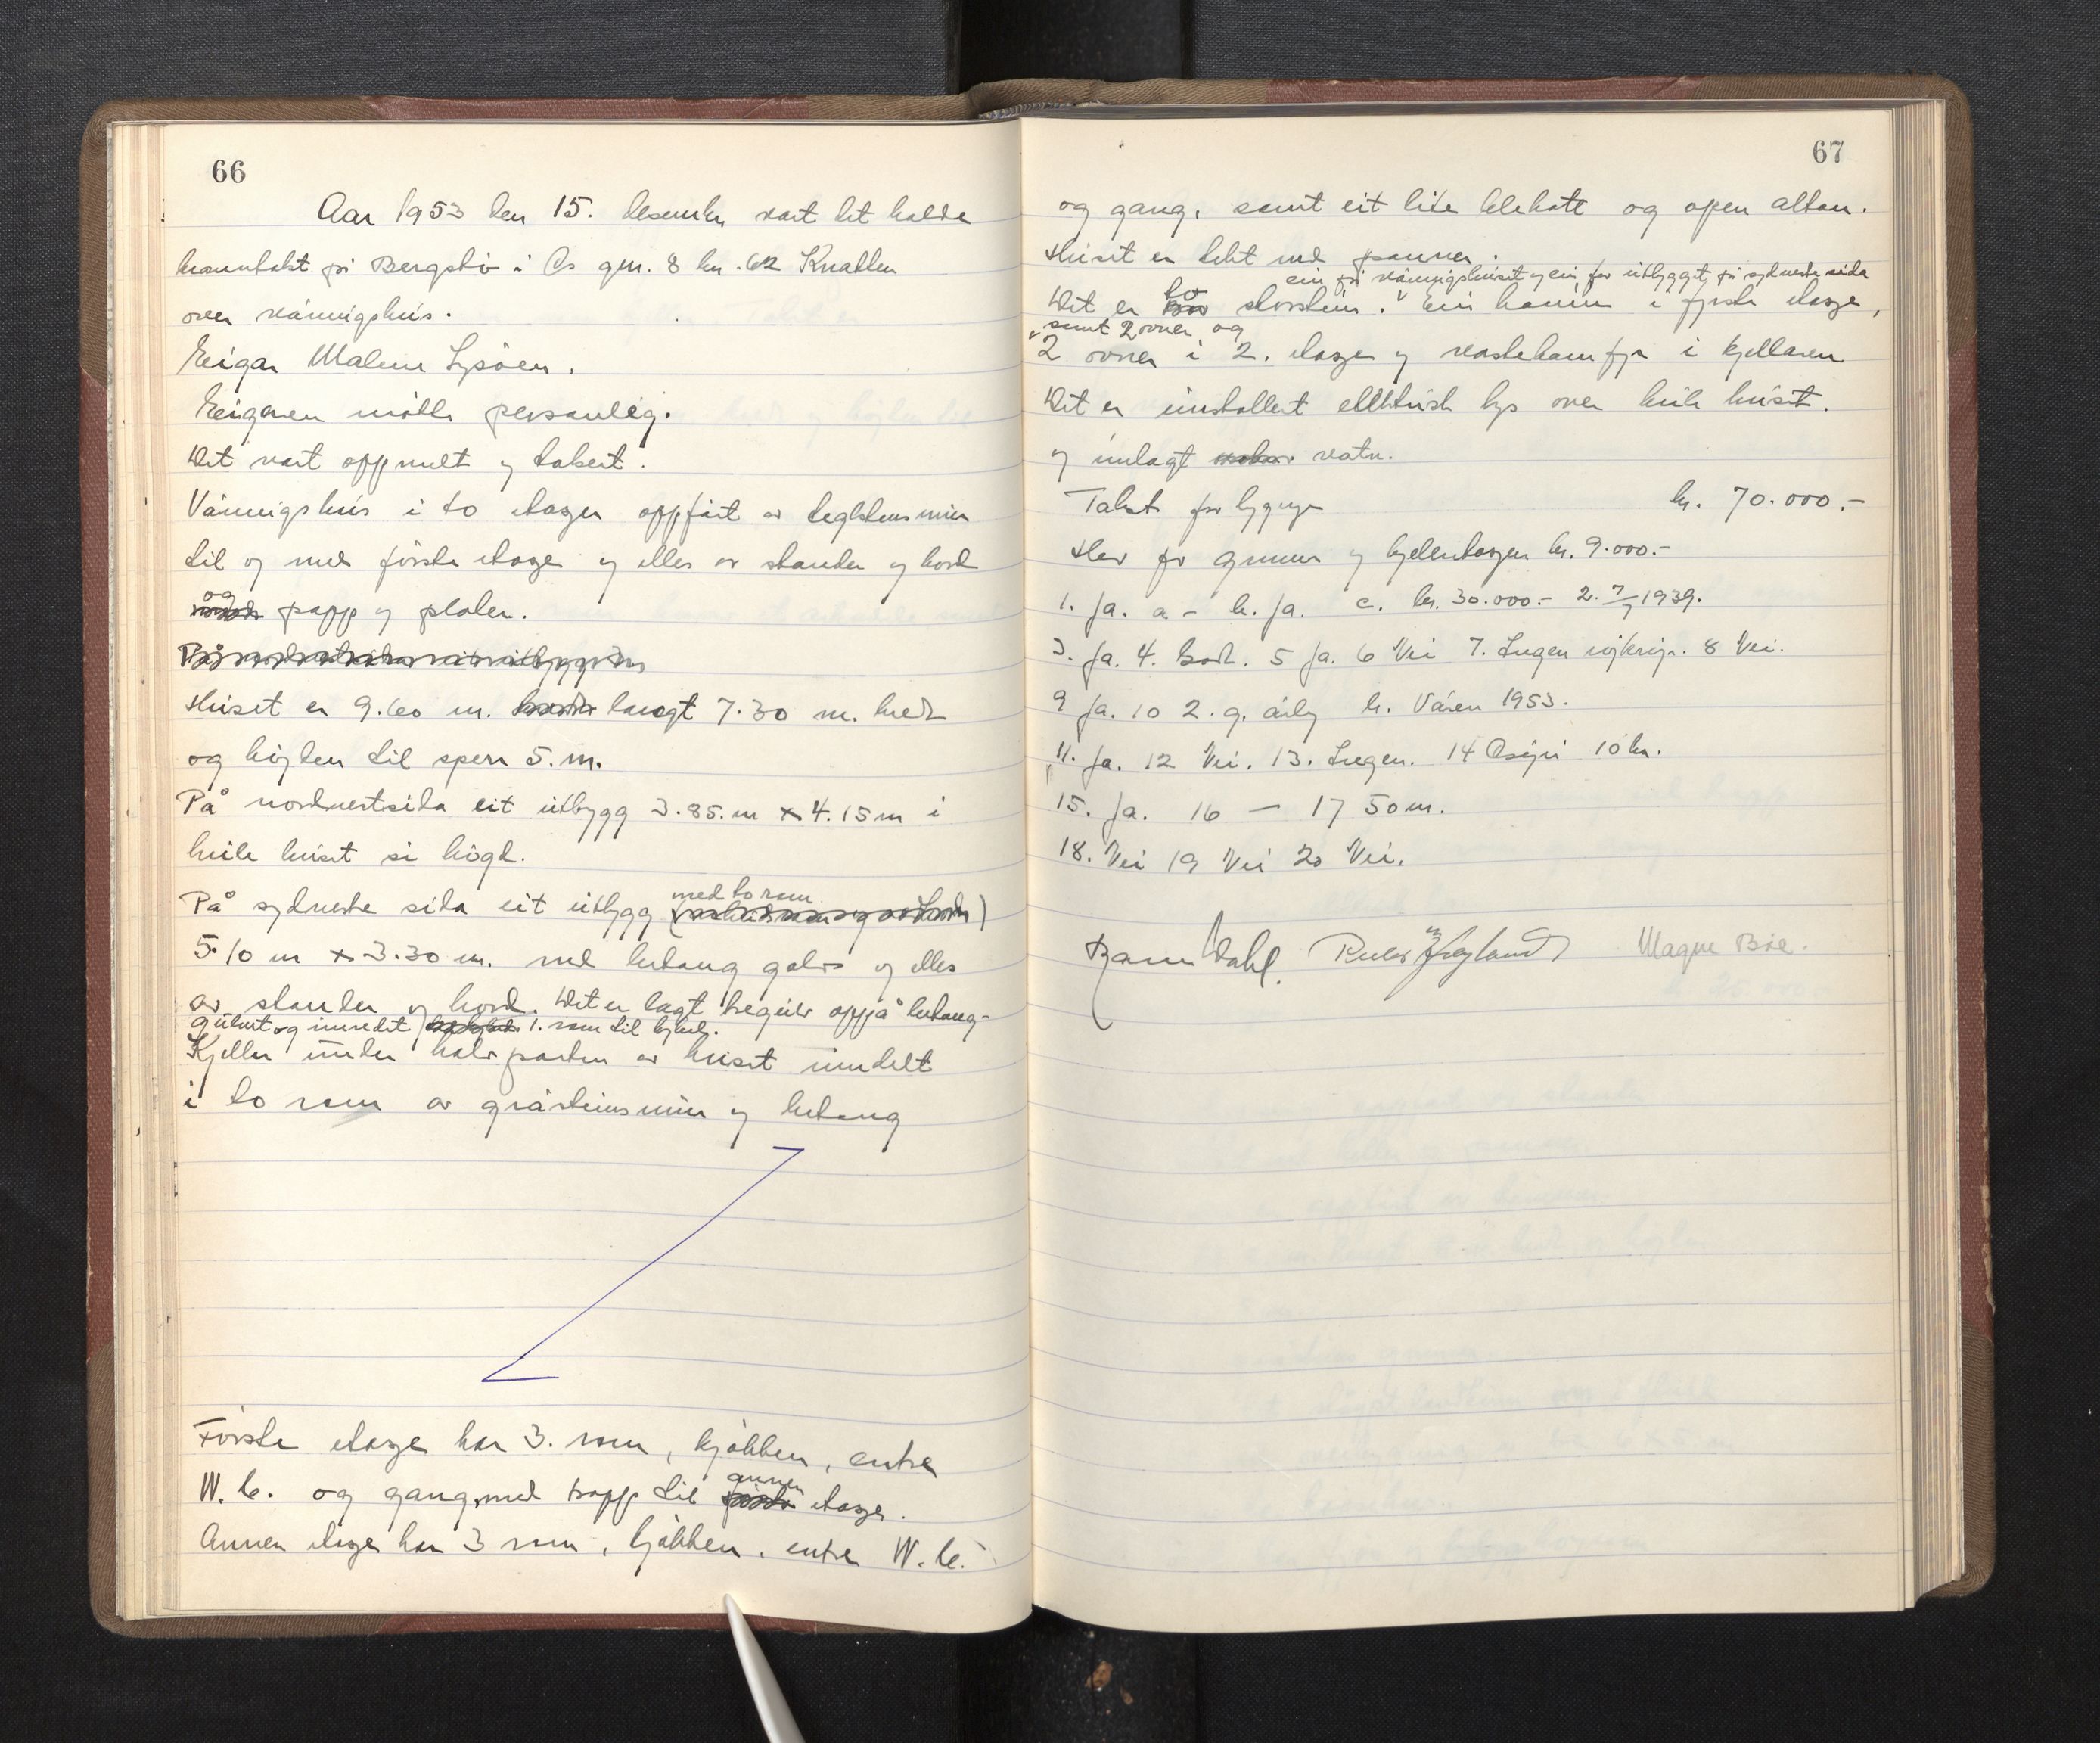 66
Aar 1953 den 15. desember vart det halde
branntakst på Bergstø i Os gnr. 8 bnr. 62 Knatten
over våningshus.
Eigar Malene Lysøen.
Eigaren møtte personlig.
Det vart oppmelt og taksert.
Våningshus i to etager oppført av teglstensmur
til og med første etage og elles av stander og bord
og papp og plater.
Huset er 9.60 m. langt 7.30 m. bredt
og høgden til sperr 5. m.
På nordvestsida eit utbygg 3.85. m x 4.15 m i
heile huset si høgd.
På sydvestre sida eit utbygg med to rom
5.10 m x 3.30 m. med betong golv og elles
av stander og bord. Det er lagt tregulv oppå betong-
gulvet og innredet 1. rom til kjøkk.
Kjeller under halvparten av huset inndelt
i to rom av gråsteinsmur og betong
Første etage har 3. rom, kjøkken, entre
W.C. og gang, med trapp til annen etage.
Annen etage har 3 rom, kjøkken, entre W.C.
67
og gang, samt eit lite klekott og open altan.
Huset er tekt med panner.
ein på våningshuset og ein for utbygget på sydvestre sida
Det er to skorstein. Ein kamin i fyrste etage,
samt 2 ovner og
2 ovner i 2. etage og vaskekamfyr i kjellaren
Det er installert elektrisk lys over heile huset.
og innlagt vatn.
Takst for bygnge kr. 70.000.-
Herav for grunnmur og kjelleretasjen kr. 9.000.-
1. Ja. a - b. Ja. c. kr. 30.000.- 2. 7/7 1939.
3. Ja. 4. Godt. 5 Ja. 6 Nei 7. Ingen 8 Nei.
9 Ja. 10 2. g. årlig b. Våren 1953.
11. Ja. 12 Nei. 13. Ingen. 14 Osøyri 10 km.
15. Ja. 16 — 17 50 m.
18. Nei 19 Nei 20 Nei.
Dahl. Magne Bøe.